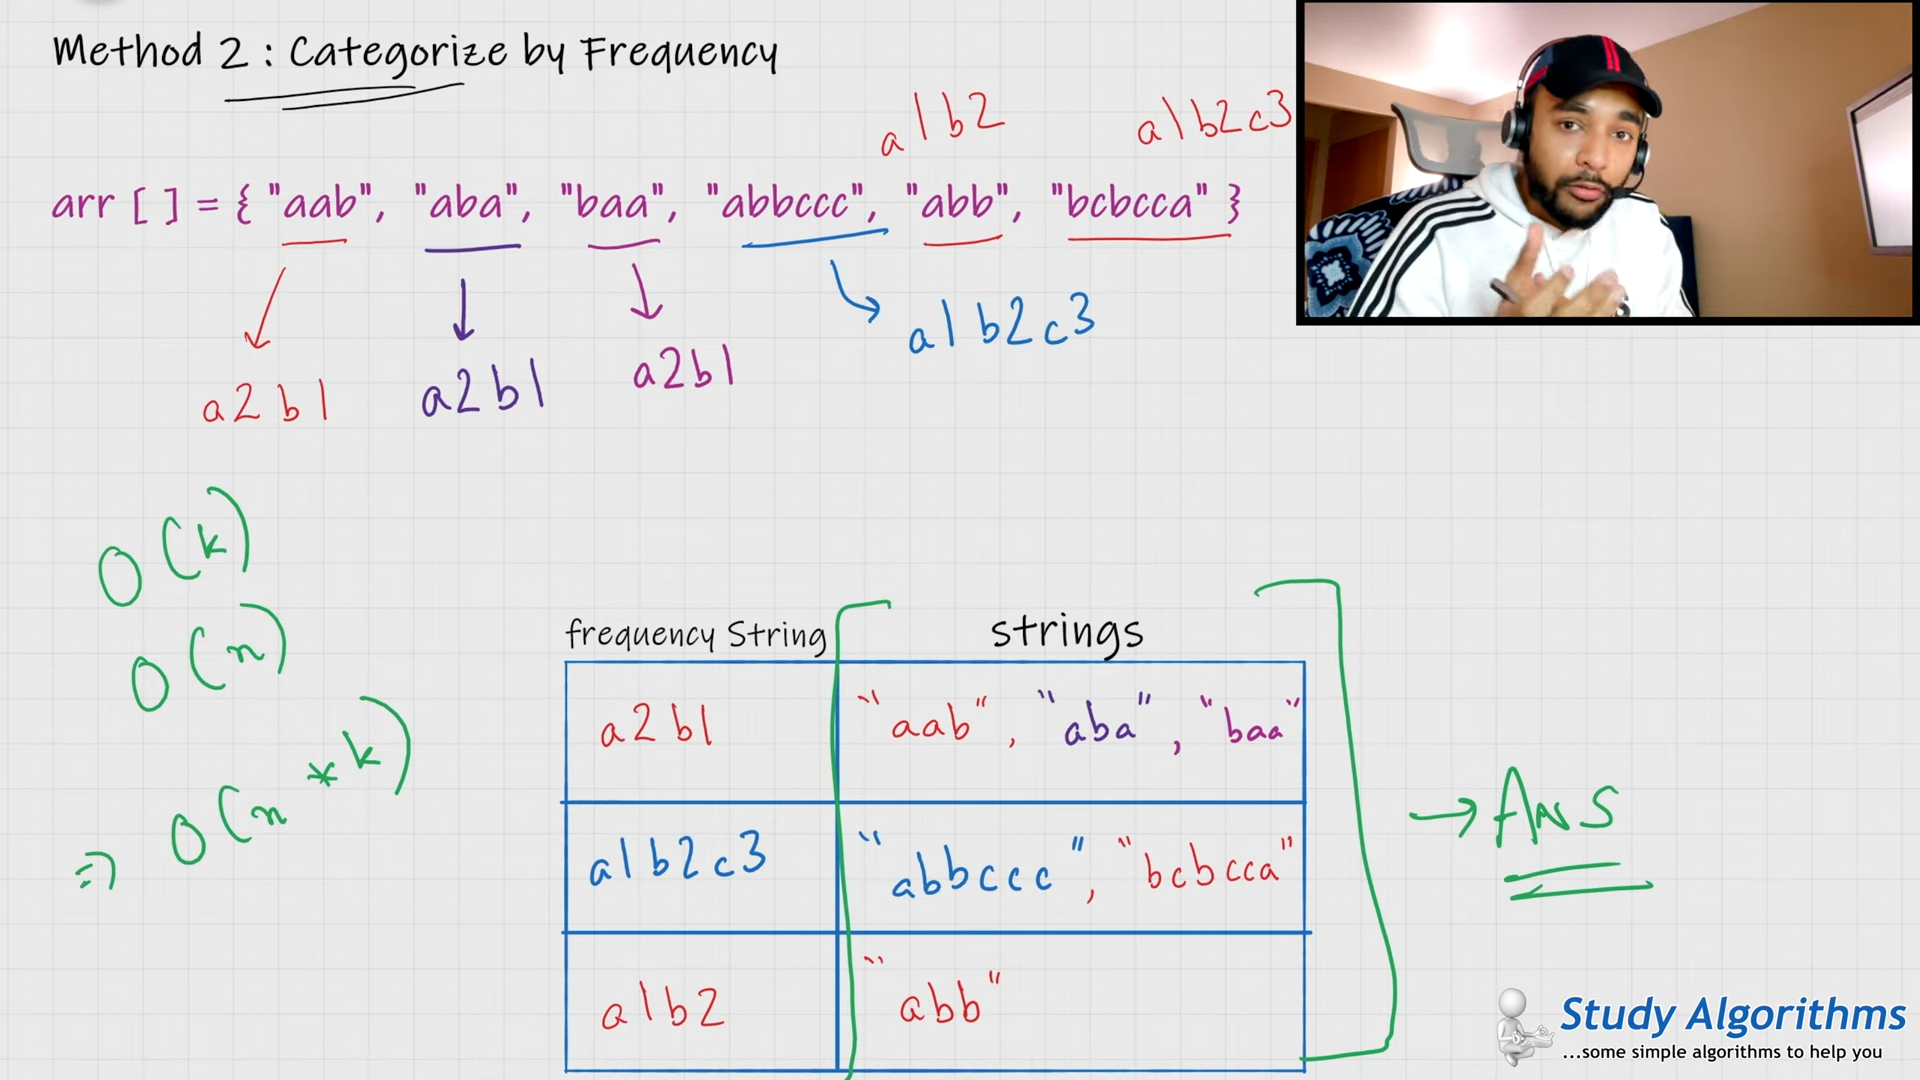 Method 2 : Categorize by Frequency
a1b2
a1b2c3
arr [ ] = { "aab", "aba", "baa", "abbccc", "abb", "bcbcca" }
a2b1
a2b1
a2b1
a1b2c3
O(k)
O(n)
=> O(n*k)
frequency String strings
a2b1 "aab", "aba", "baa"
a1b2c3 "abbccc", "bcbcca"
a1b2 "abb"
→ Ans
Study Algorithms
...some simple algorithms to help you